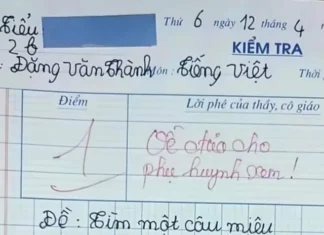 Tiểu Thứ 6 ngày 12 tháng 4
2b KIỂM TRA
: Đặng Văn Thành Môn: Tiếng Việt Thời
Điểm Lời phê của thầy, cô giáo
1 Về đưa cho
phụ huynh xem!
Đề: Tìm một câu miêu